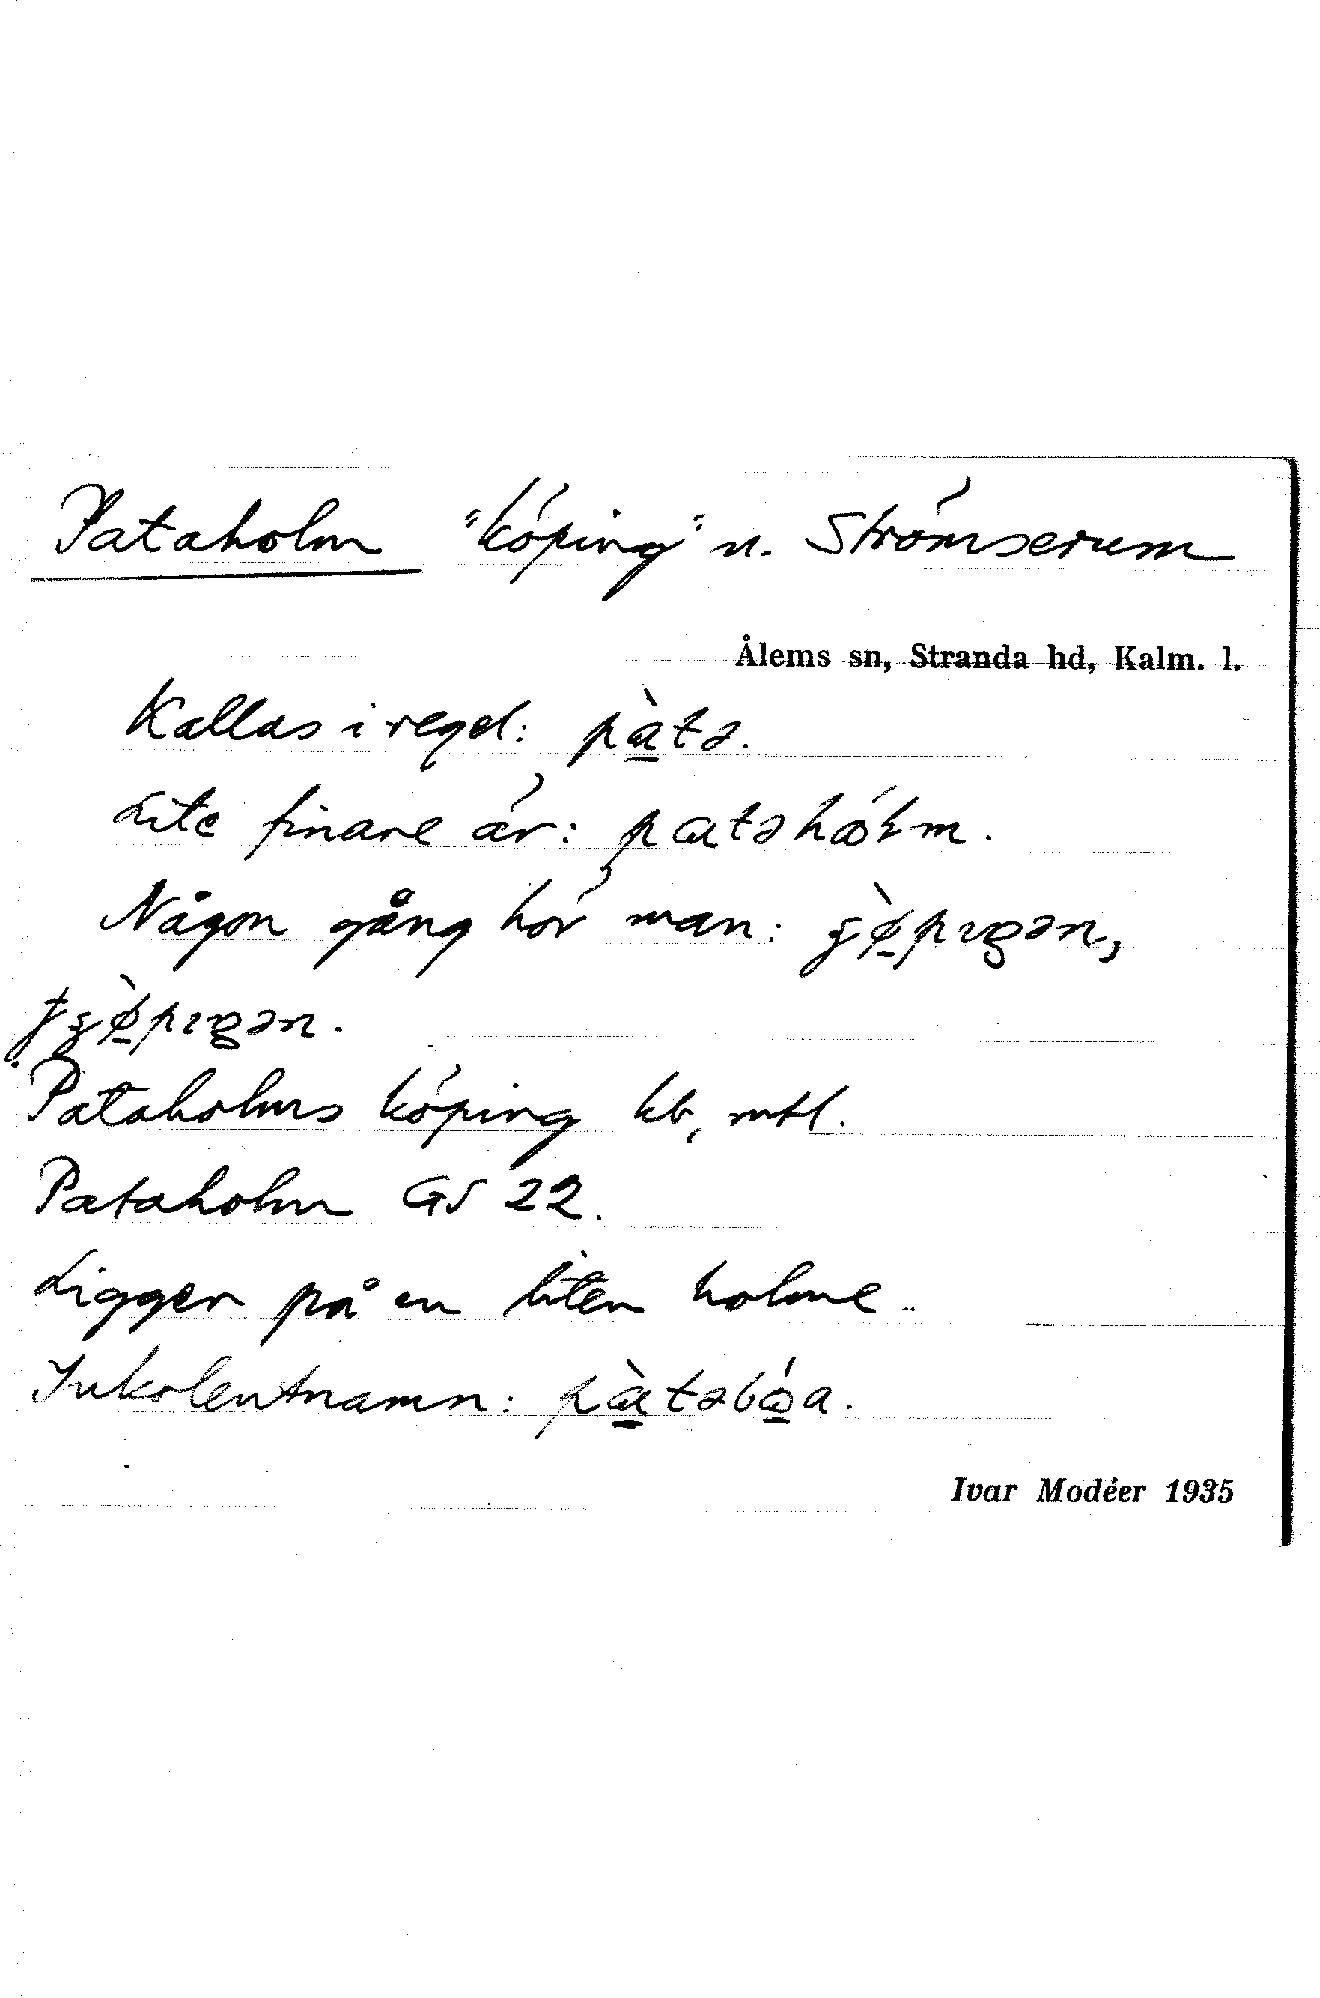 Pataholm "köping" n. Strömserum
Ålems sn, Stranda hd, Kalm. l.
Kallas i regel: pàtə.
Lite finare är: patəhólm.
Någon gång hör man:
Pataholms köping kb, mtl.
Pataholm GS 22.
Ligger på en liten holme.
Inkolentnamn:
Ivar Modéer 1935